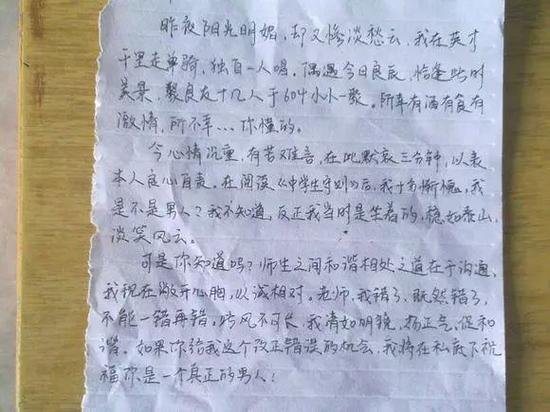 昨夜阳光明媚,却又惨淡愁云,我在英才
千里走单骑,独自一人喝,偶遇今日良辰,恰逢此时
美景,聚良友十几人于604小小一聚。所幸有酒有食有
激情,所不幸…你懂的。
今心情沉重,有苦难言,在此默哀三分钟,以表
本人良心自责。在阅读《中学生守则》后,我十分惭愧,我
是不是男人?我不知道,反正我当时是坐着的,稳如泰山,
谈笑风云。
可是你知道吗?师生之间和谐相处之道在于沟通,
我现在敞开心胸,以诚相对。老师,我错了,既然错了,
不能一错再错,歪风不可长,我清如明镜,扬正气,促和
谐。如果你给我这个改正错误的机会,我将在私底下祝
福你是一个真正的男人!